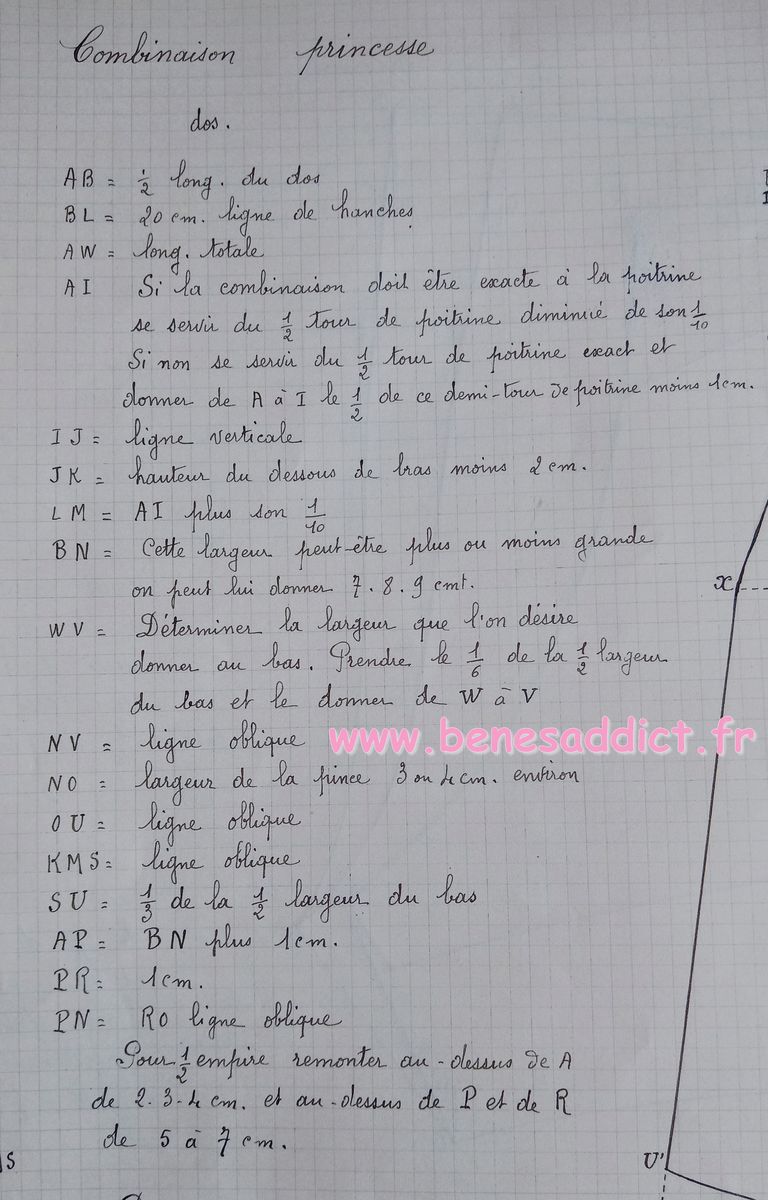 Combinaison princesse
dos.
AB = 1/2 long. du dos
BL = 20 cm. ligne de hanches
AW = long. totale
AI Si la combinaison doit être exacte à la poitrine
se servir du 1/2 tour de poitrine diminué de son 1/10
Si non se servir du 1/2 tour de poitrine exact et
donner de A à I le 1/2 de ce demi-tour de poitrine moins 1cm.
IJ = ligne verticale
JK = hauteur du dessous de bras moins 2cm.
LM = AI plus son 1/10
BN = Cette largeur peut-être plus ou moins grande
on peut lui donner 7. 8. 9 cmt.
X
WV = Déterminer la largeur que l'on désire
donner au bas. Prendre le 1/6 de la 1/2 largeur
du bas et le donner de W à V
NV = ligne oblique
www.benesaddict.fr
NO = largeur de la pince 3 ou 4cm. environ
OU = ligne oblique
KMS = ligne oblique
SU = 1/3 de la 1/2 largeur du bas
AP = BN plus 1cm.
PR = 1cm.
PN = RO ligne oblique
Pour 1/2 empire remonter au-dessus de A
de 2. 3-4 cm. et au-dessus de P et de R
de 5 à 7 cm.
S
U'